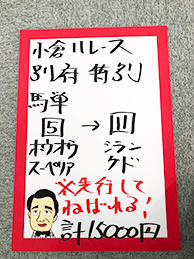 小倉11レース
別府特別
馬単
5→11
ホウオウ ジラン
スーペリア クド
※先行して
ねばれる!
計15000円